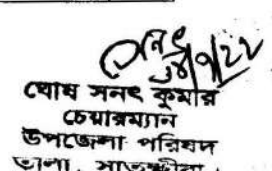 ঘোষ সনৎ কুমার
চেয়ারম্যান
উপজেলা পরিষদ
তালা, সাতক্ষীরা।